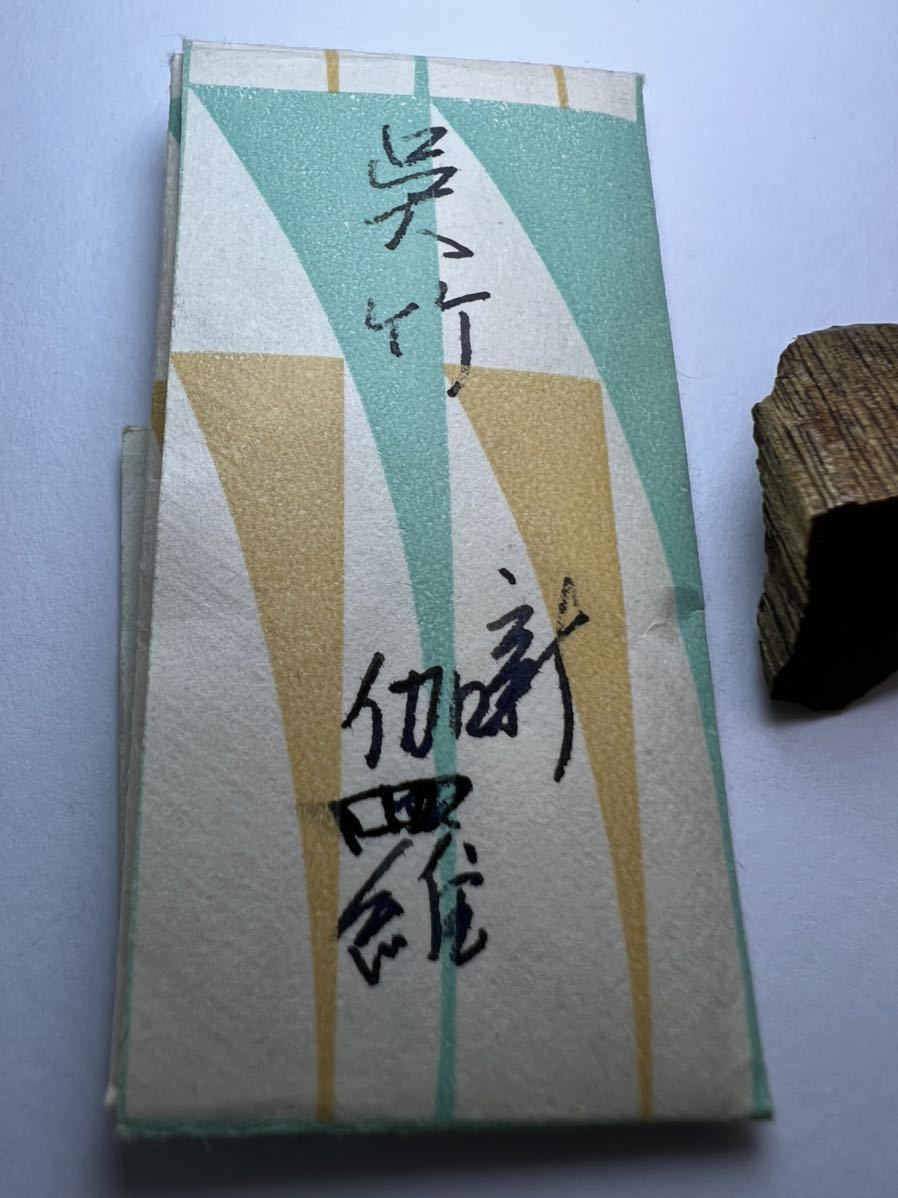 呉竹
新
伽羅